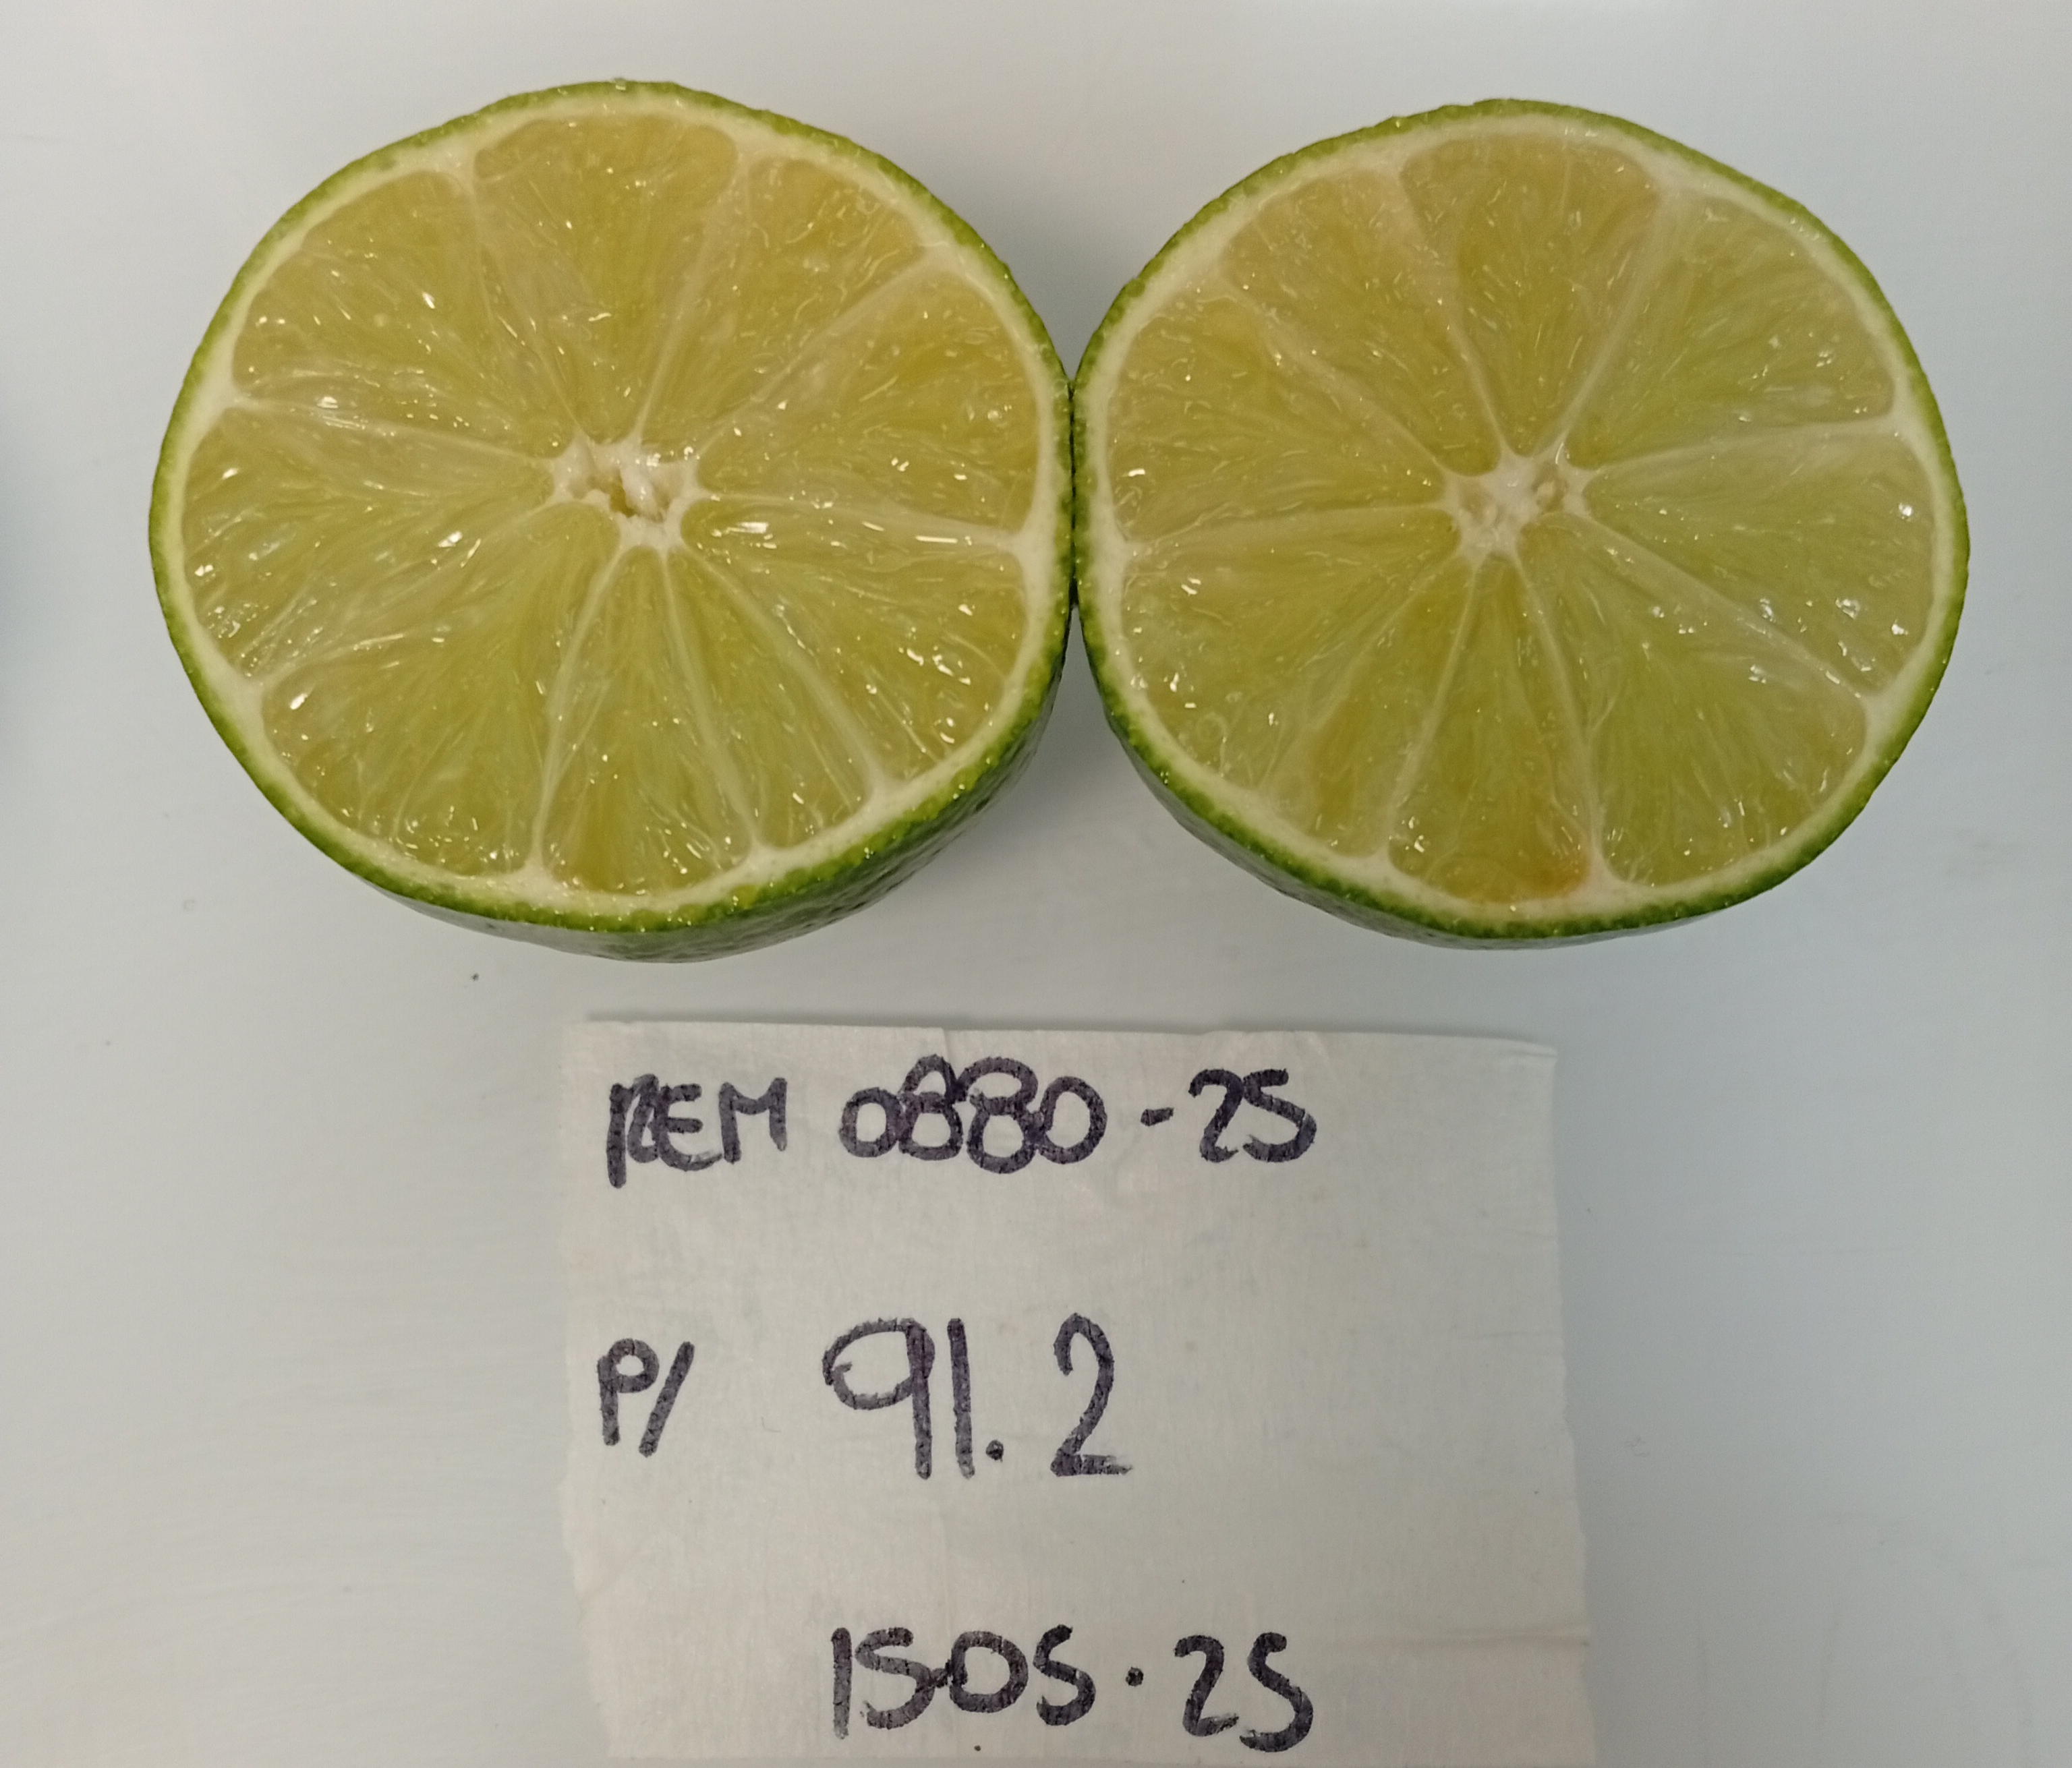 REM 0880-25
P/ 91.2
15.05.25